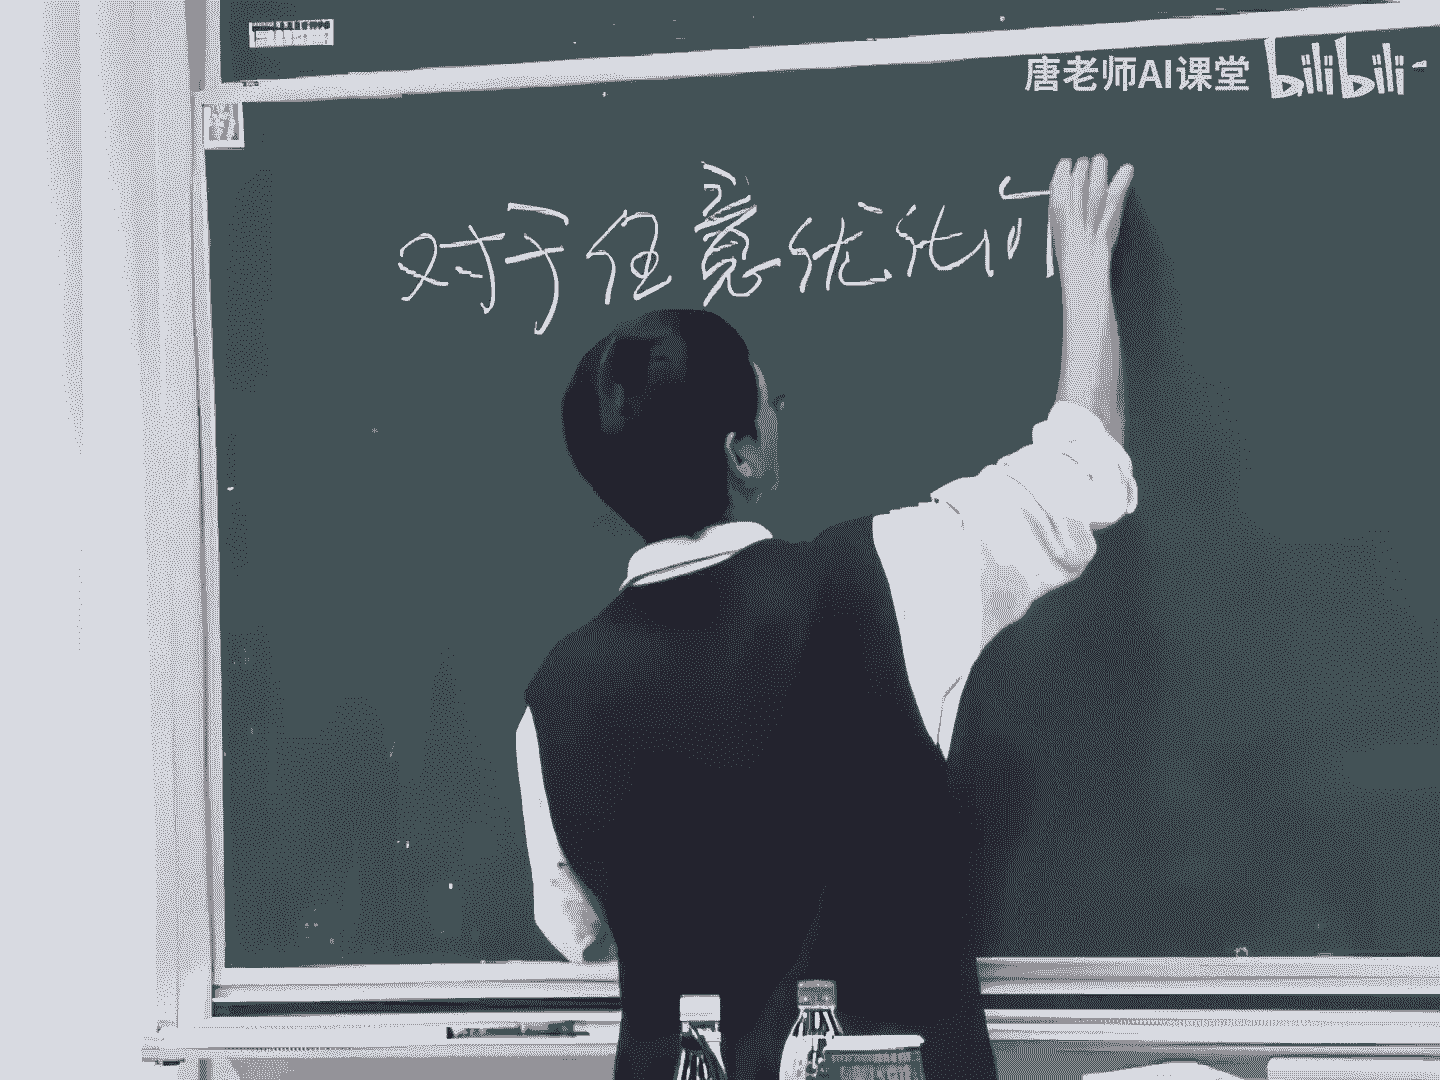 唐老师AI课堂 bilibili
对于任意优化问